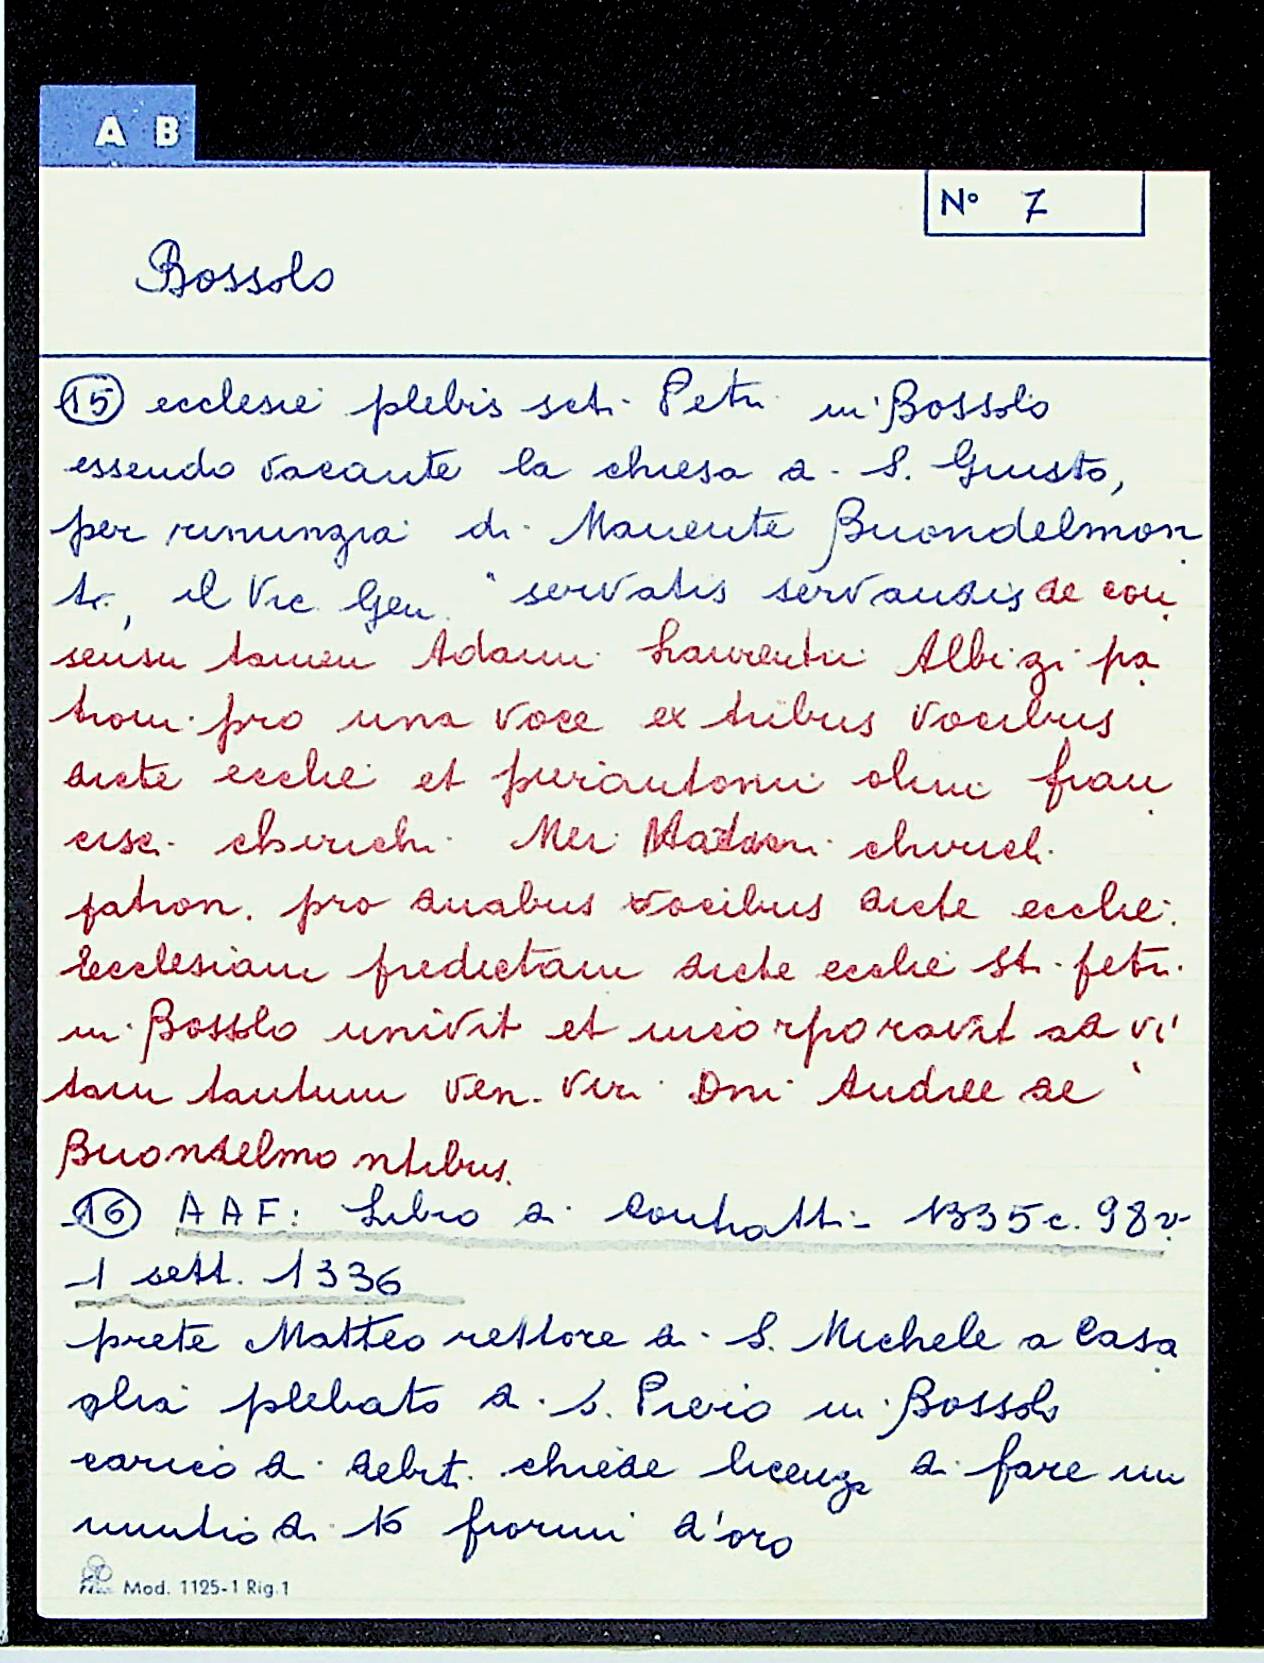 A B
N° 7
Bossolo
15 ecclesie plebis scti. Petri in Bossolo
essendo vacante la chiesa di S. Giusto,
per rinunzia di Manente Buondelmon
ti, il Vic. Gen. "servatis servandis de con
sensu tamen Adami Laurentii Albizi pa
troni pro una voce ex tribus vocibus
dicte ecclie et pierantonii olim fran
cisci
patron. pro duabus vocibus dicte ecclie.
Ecclesiam predictam dicte ecclie Sti. petri
in Bossolo univit et incorporavit ad vi
tam tantum ven. viri Dni Andree de
Buondelmontibus.
16 AAF: Libro di Contratti - 1335 c. 98v.
1 sett. 1336
prete Matteo rettore di S. Michele a Casa
glia plebato di S. Piero in Bossolo
carico di debit. chiede licenza di fare un
mutuo di 16 fiorini d'oro
Mod. 1125-1 Rig.1